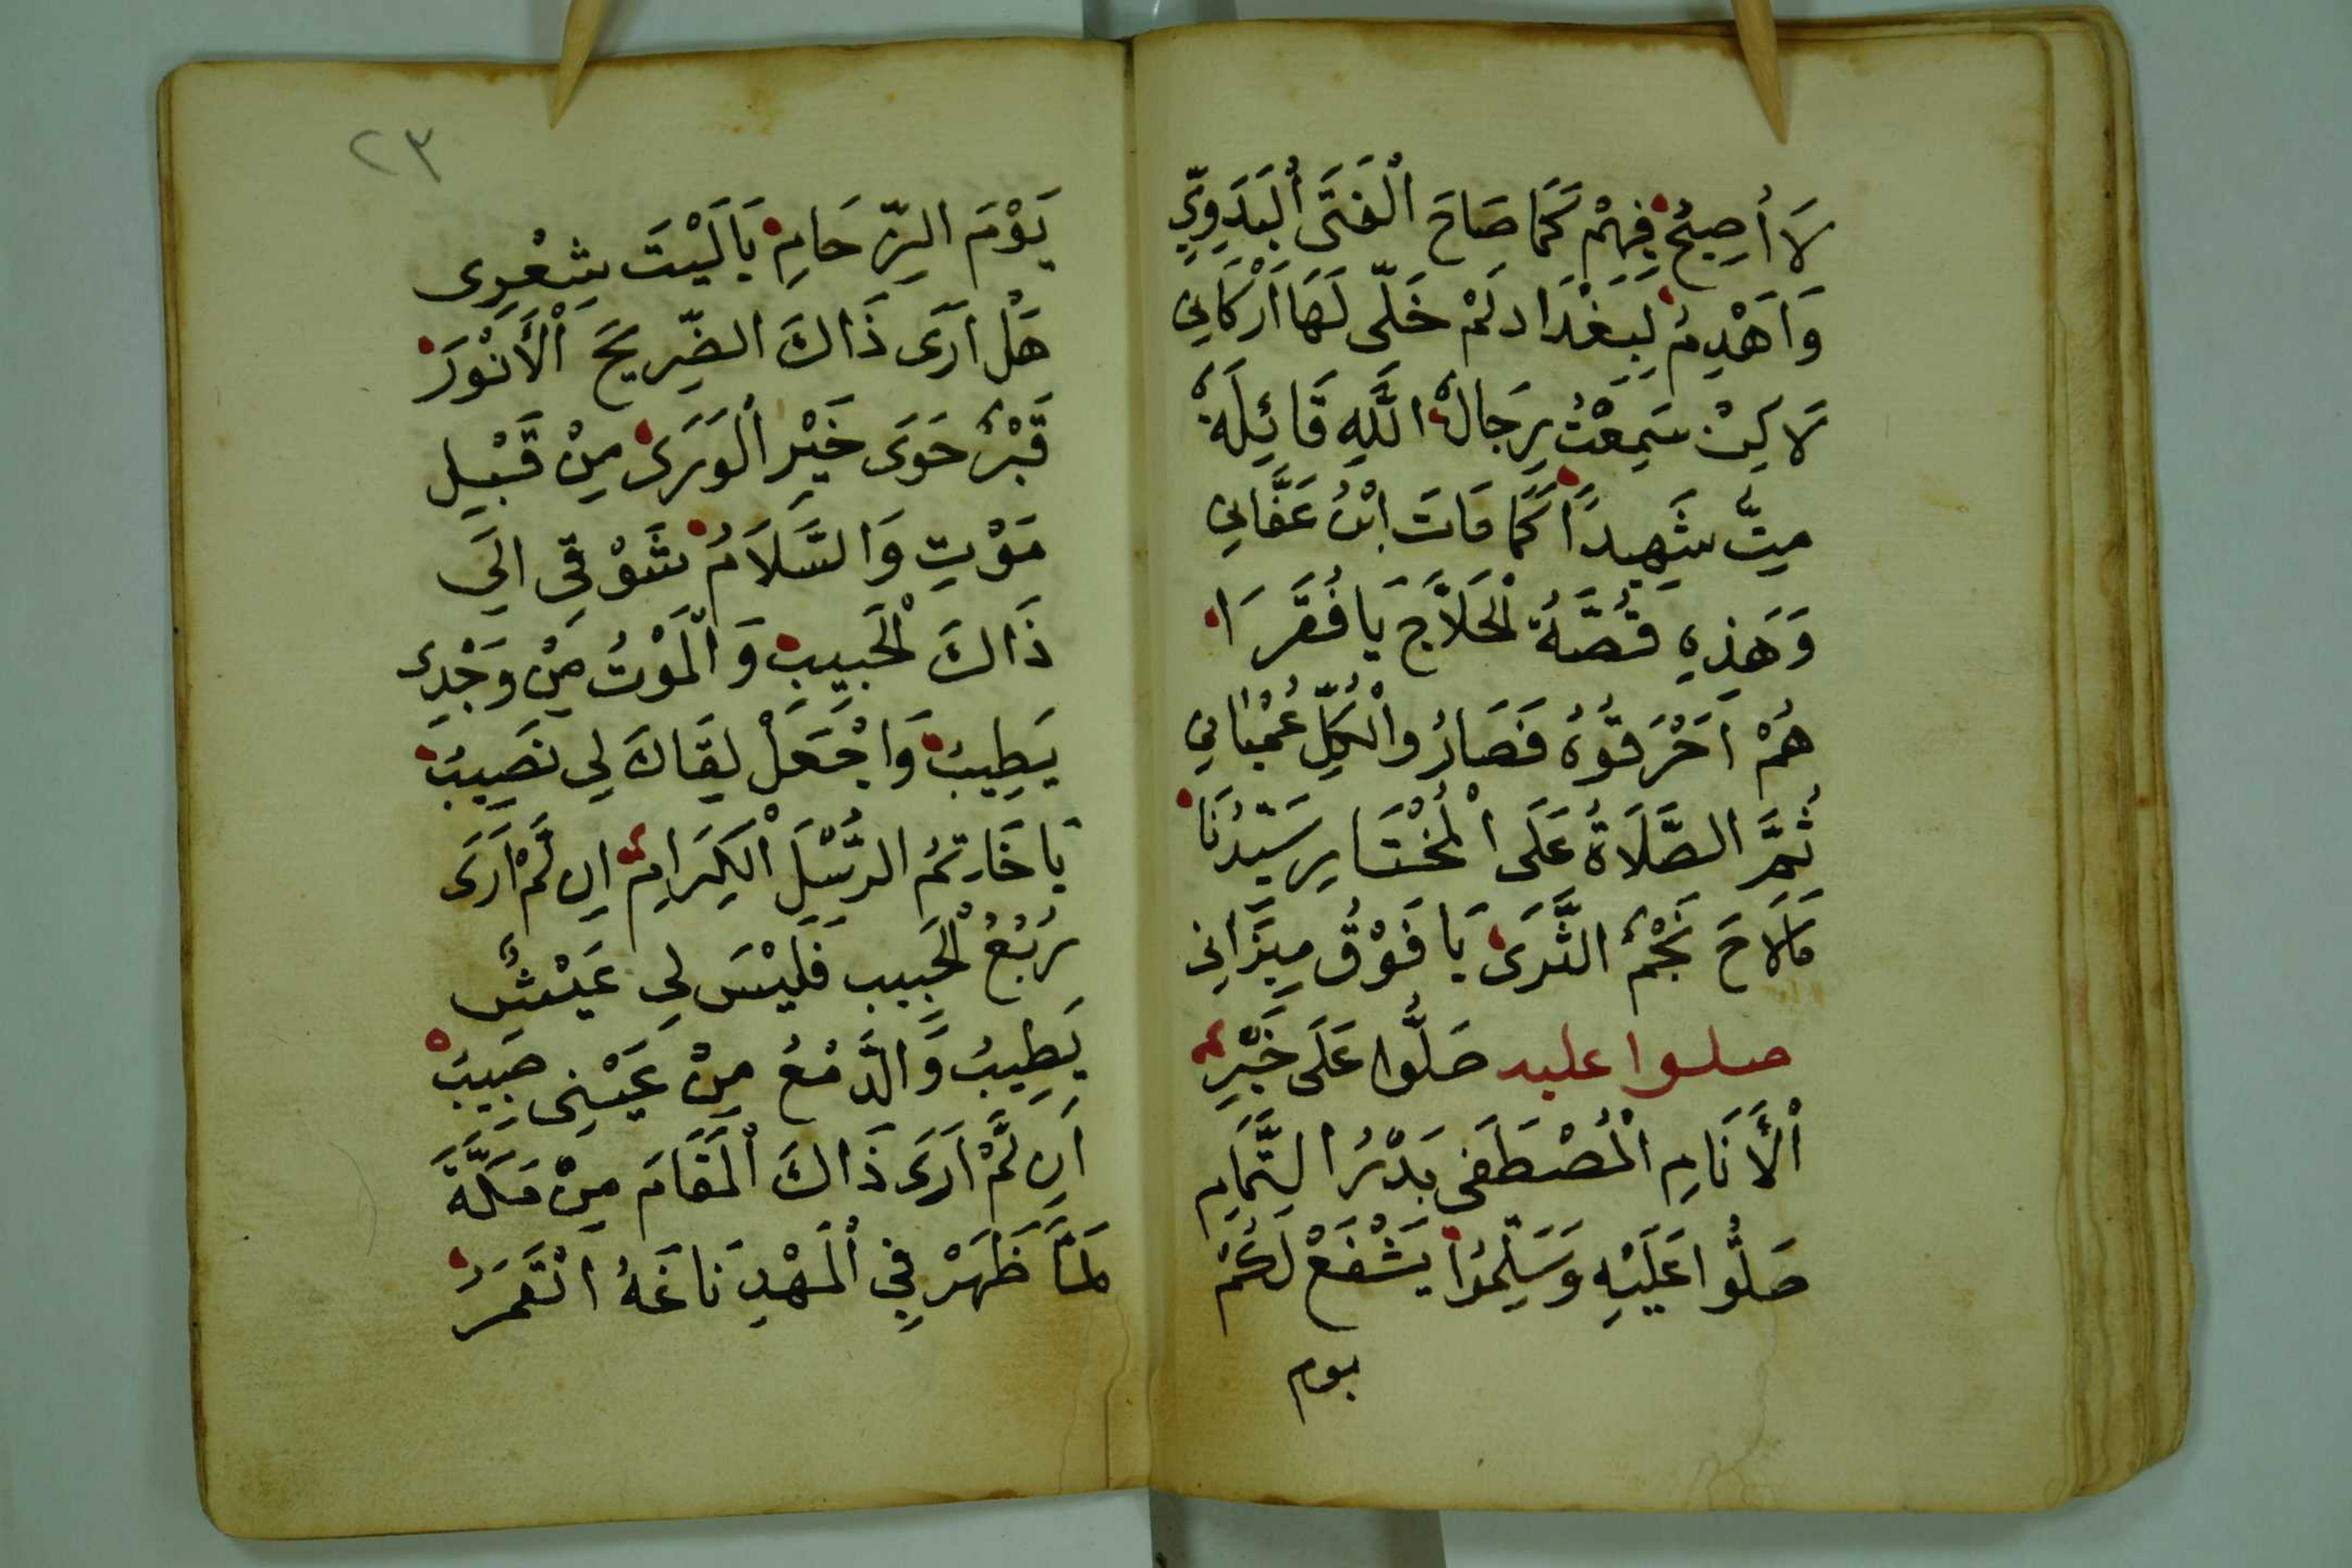 لَا أُصِيحُ فِيهِمْ كَمَا صَاحَ الْفَتَى الْبَدَوِيِّ
وَاَهْدِمُ لِبَغْدَاد لَمْ خَلّى لَهَا اَرْكَانِي
لَاكِنْ سَمِعْتُ رِجَالْ اللَّهِ قَائِلَةً
مِيتّ شَهِيداً كَمَا مَاتَ ابْنُ عَفَّانِي
وَهَذِهِ قُصَّةُ الْحَلَّاجَ يَا فُقَرَا
هُمْ اَحْرَقُوهُ فَصَارُوا الْكُلِّ عُمْيَانِي
ثُمَّ الصَّلَاةُ عَلَى الْمُخْتَارِ سَيّدُنَا
مَالَاحَ نَجْمُ الثَّرَى يَا فَوْقُ مِيزَانِي
صلوا عليه صَلُّوا عَلَى خَيْرِ
الْأَنَامِ الْمُصْطَفَى بَدْرُ التَّمَامِ
صَلُّوا عَلَيْهِ وَسَلِّمُوا يَشْفَعْ لَكُمْ
يوم
٢٣
يَوْمَ الزِّحَامِ يَالَيْتَ شِعْرِى
هَلْ اَرَى ذَاكَ الضِّرِيحَ الْأَنْوَرَ
قَبْرٌ حَوَى خَيْرِ الْوَرَى مِنْ قَبْلِ
مَوْتِ وَالسَّلَامُ شَوْقِى الَى
ذَاكَ الْحَبِيبِ وَالْمَوْتُ مِنْ وَجْدِى
يَطِيبُ وَاجْعَلْ لِقَاكَ لِى نَصِيبُ
يَا خَاتِمُ الرُّسْلِ الْكِرَامِ اِن لَّمْ اَرَى
رَبْعُ الْحَبِيب فَلَيْسَ لِى عَيْشٌ
يَطِيبُ وَالدَّمْعُ مِنْ عَيْنِى صَبِيبُ
اَن لَّمْ اَرَى ذَاكَ الْمَقَامَ مِنْ مَكَّةَ
لَمَّا ظَهَرْ فِي الْمَهْدِ نَاغَهُ الْقَمَرُ